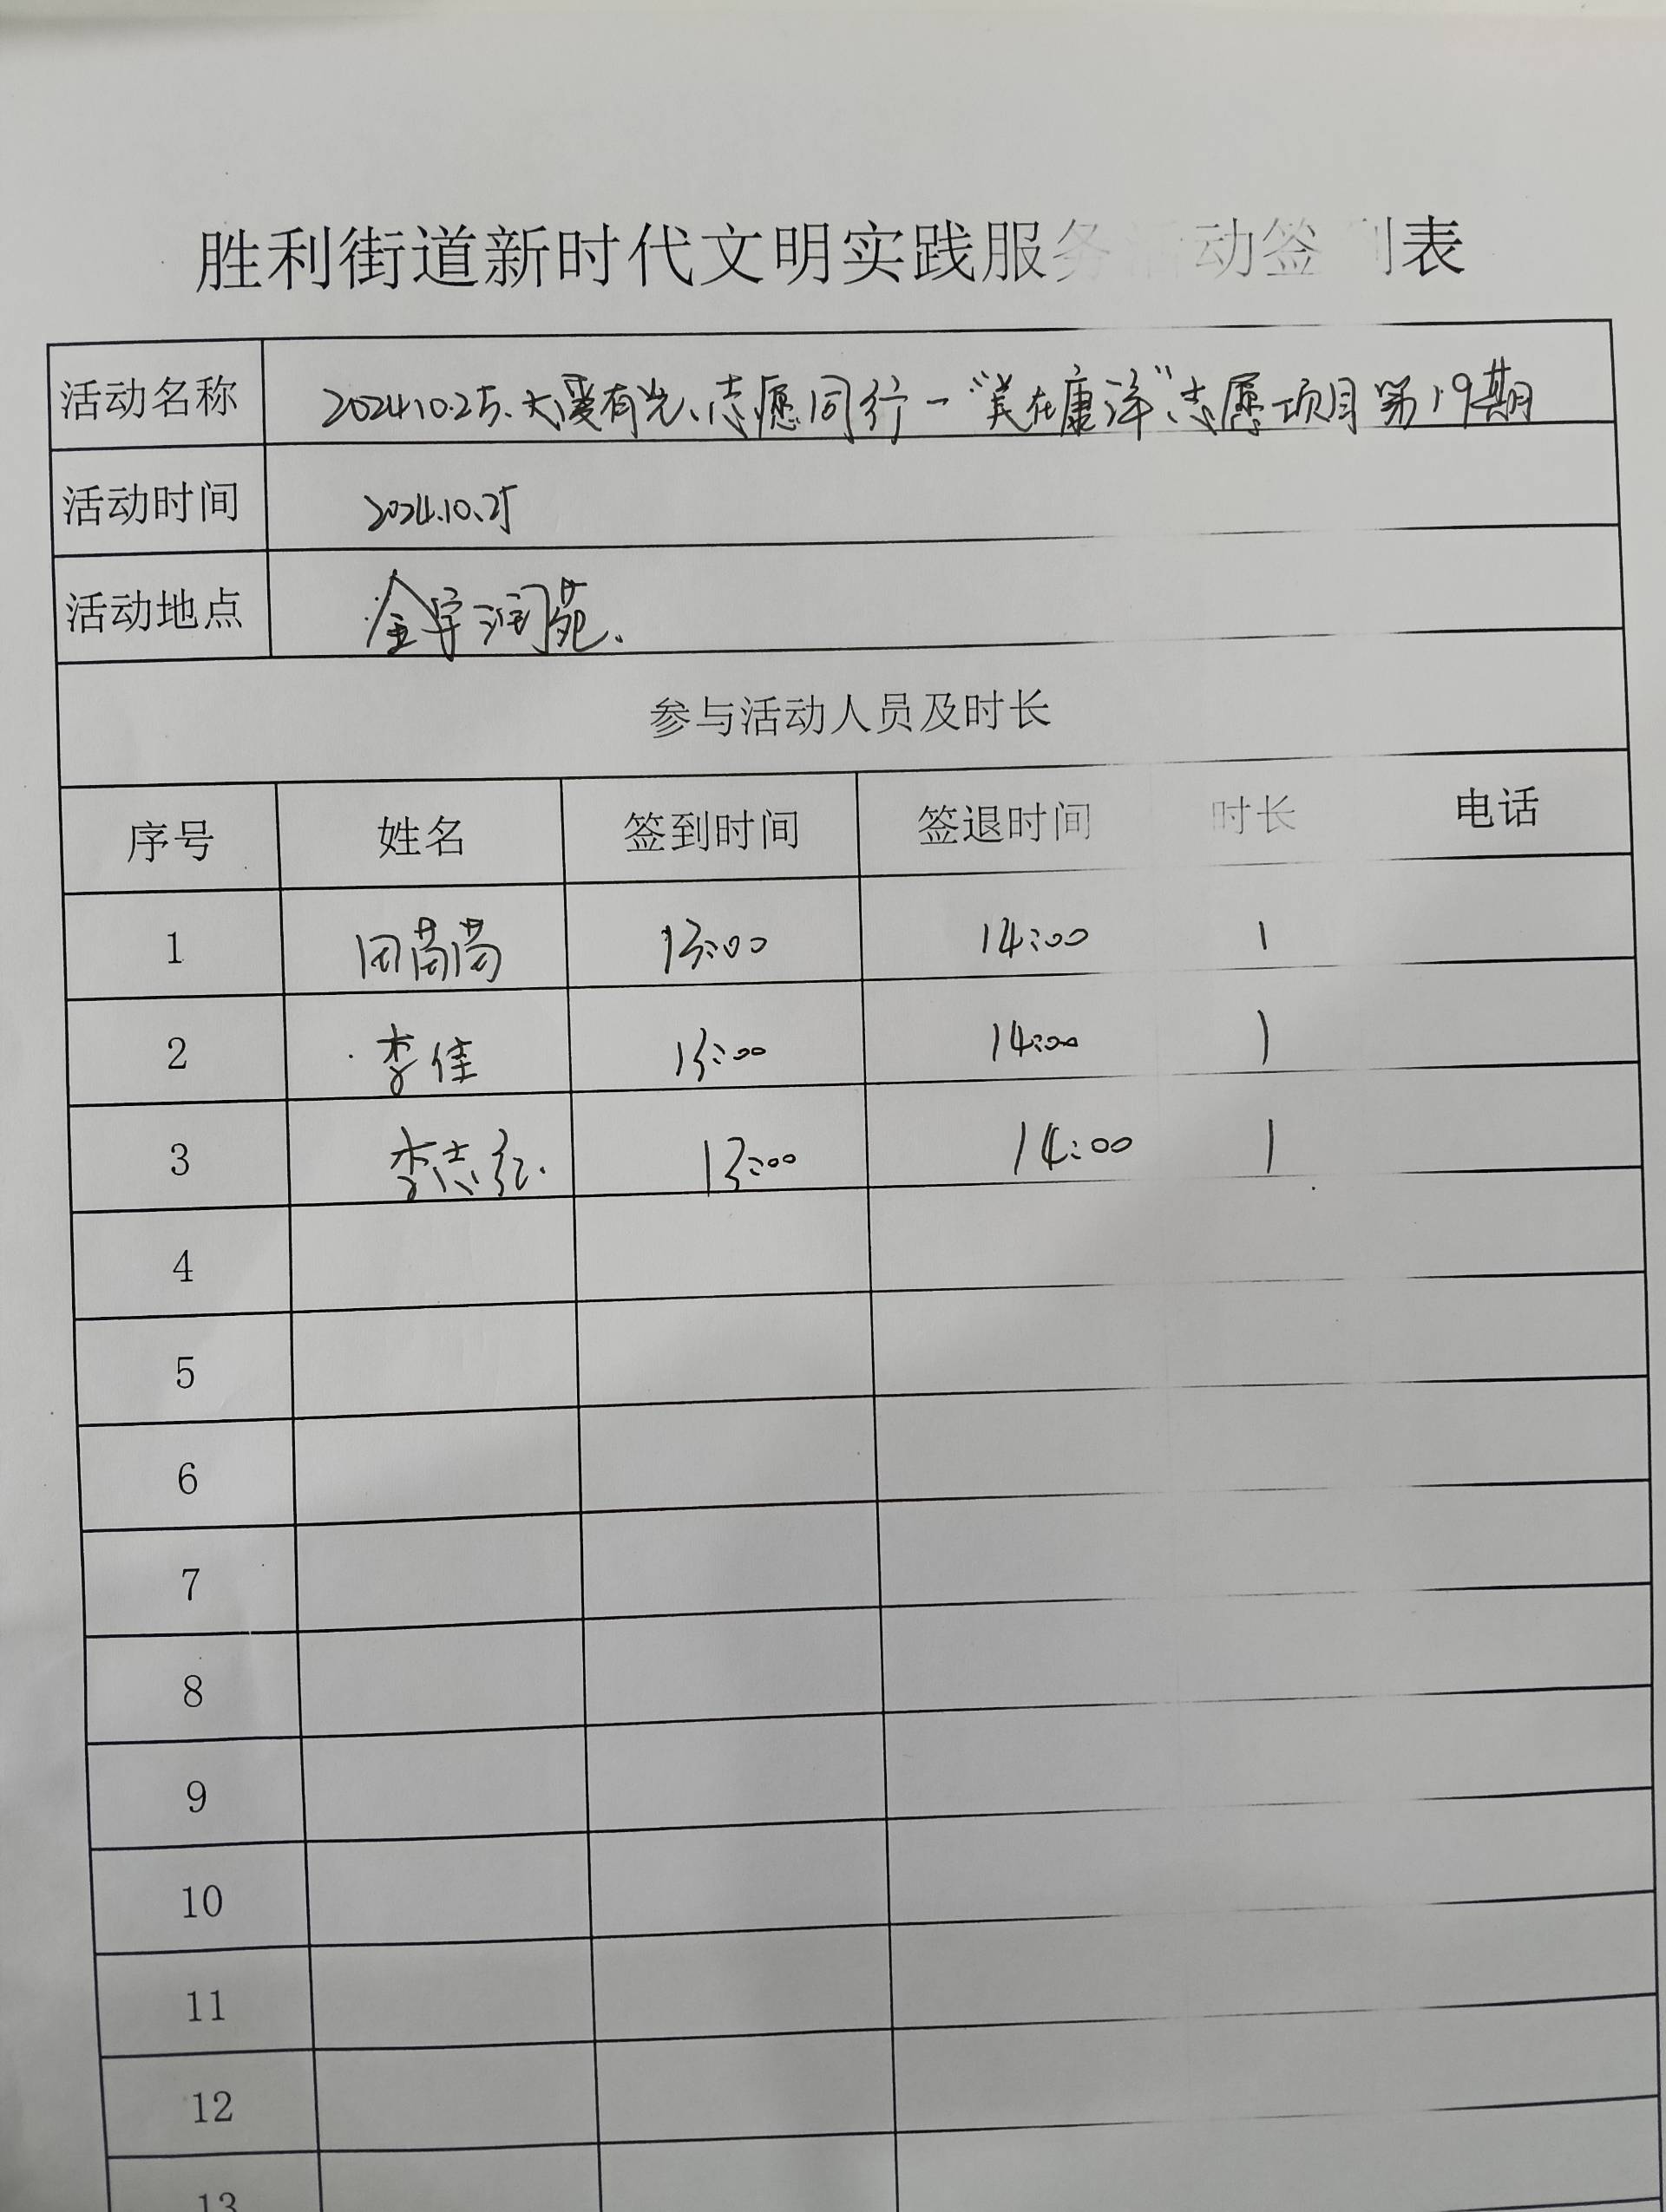 胜利街道新时代文明实践服务活动签到表
活动名称 2024.10.25.大爱有光、志愿同行-“美在康洋”志愿项目第19期
活动时间 2024.10.25
活动地点 金宇润苑.
参与活动人员及时长
序号 姓名 签到时间 签退时间 时长 电话
1 田茵茵 13:00 14:00 1
2 李佳 13:00 14:00 1
3 李志红. 13:00 14:00 1
4
5
6
7
8
9
10
11
12
13